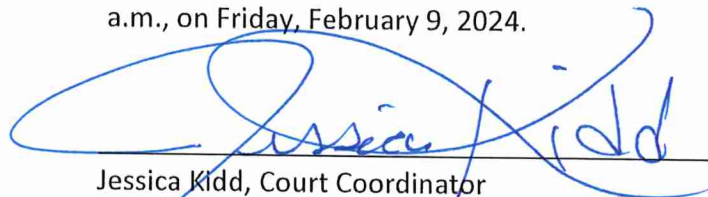 a.m., on Friday, February 9, 2024.
Jessica Kidd
Jessica Kidd, Court Coordinator